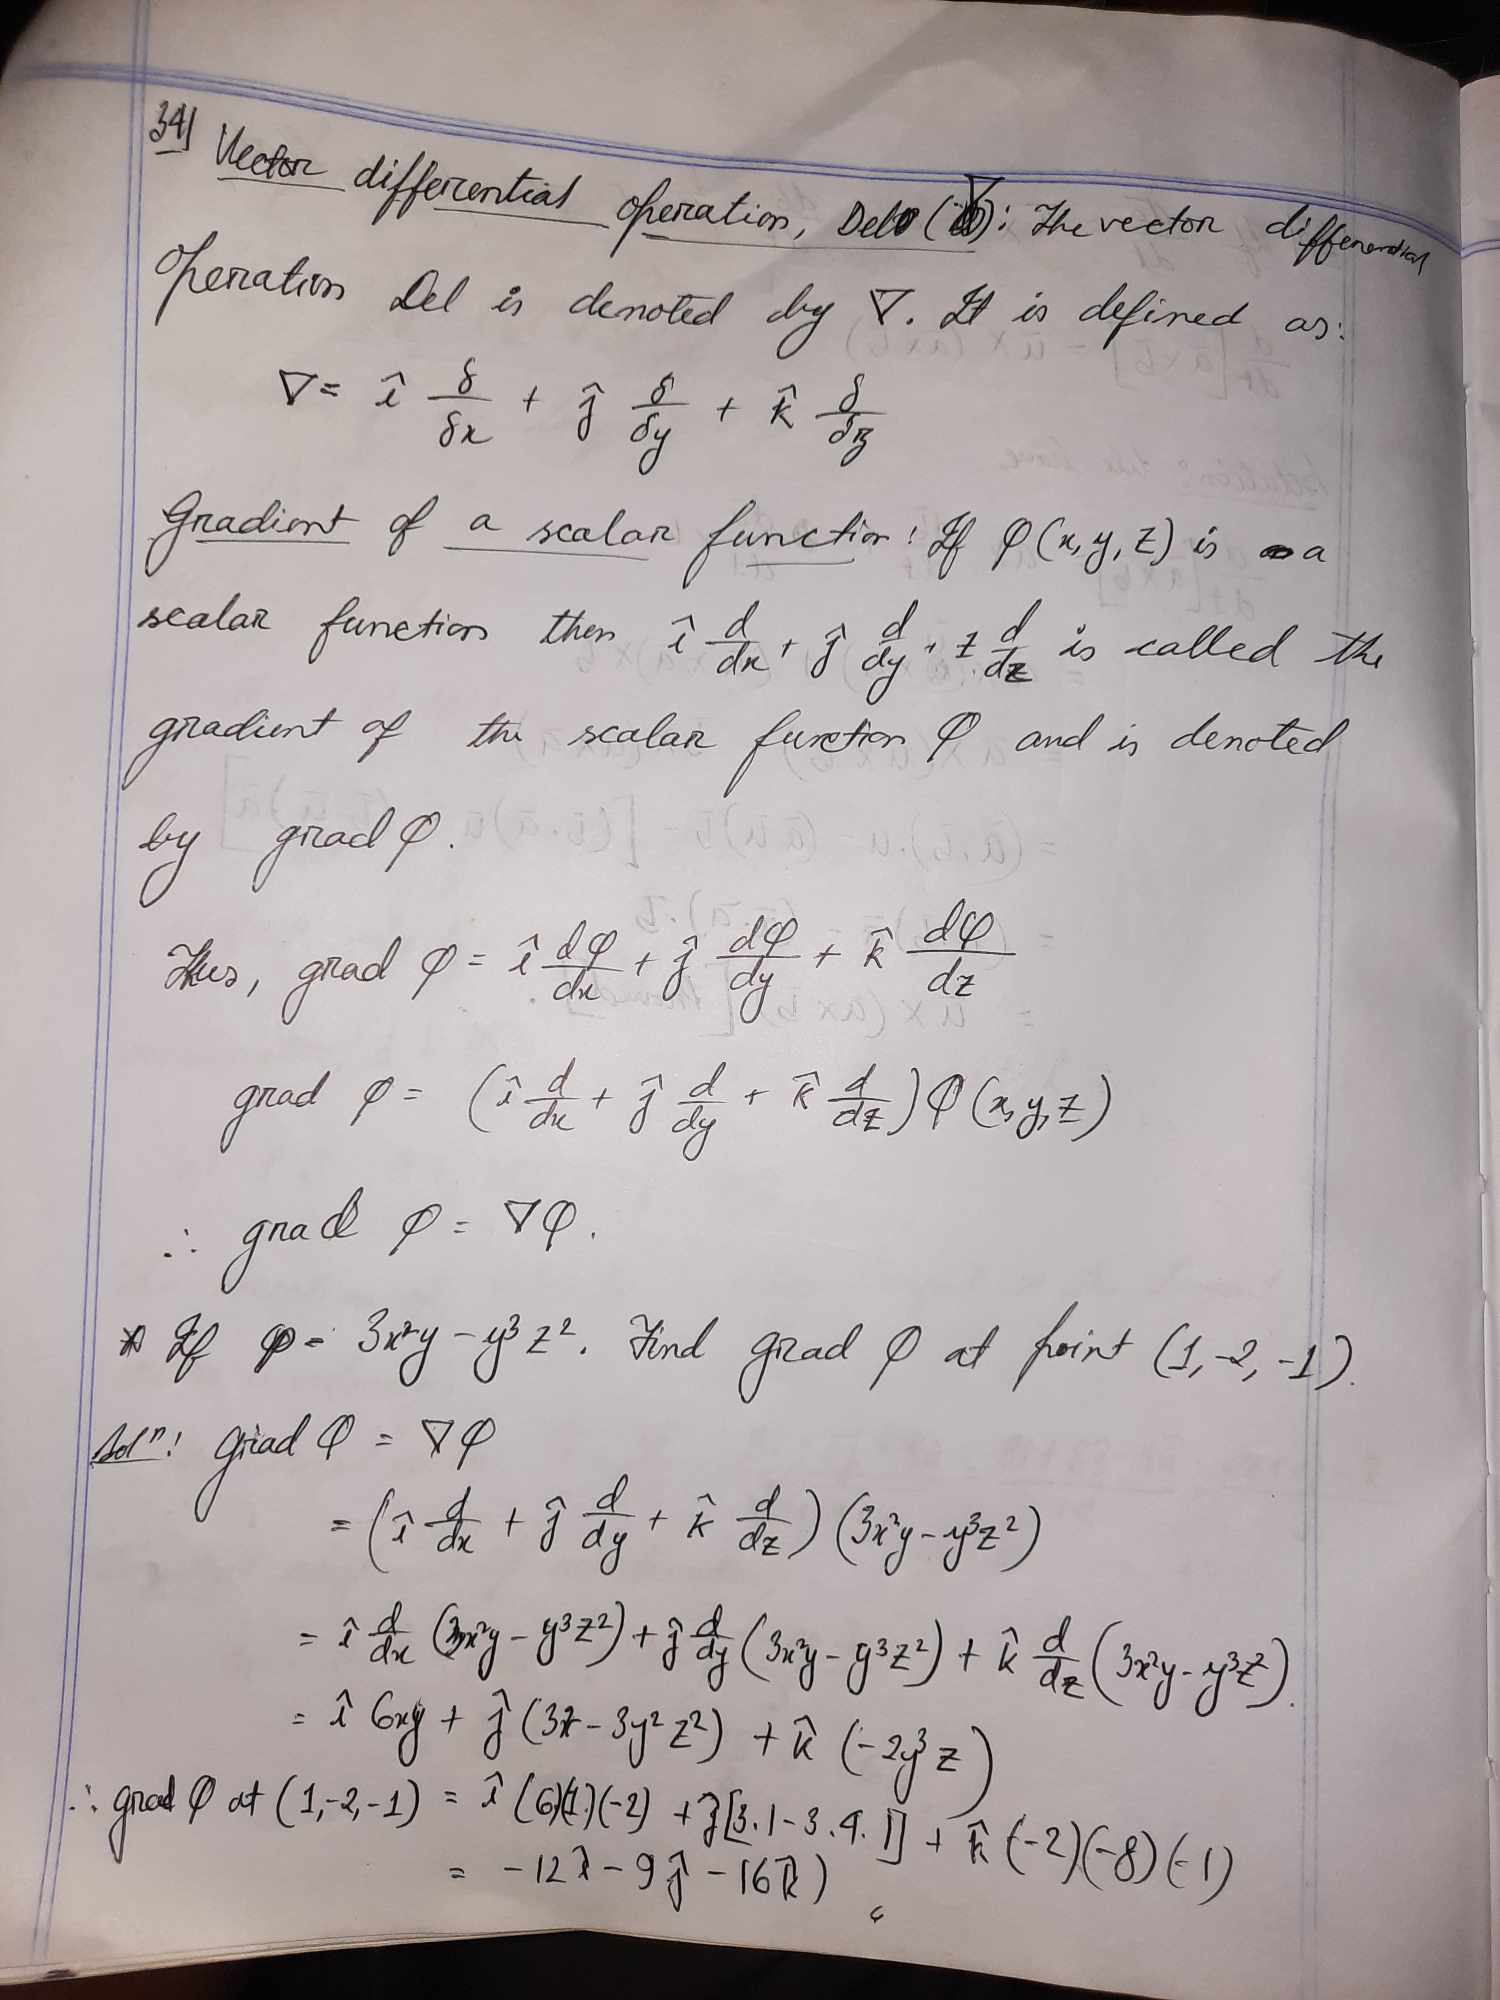 34| Vector differential operation, Del (∇): The vector differential
operation Del is denoted by ∇. It is defined as:
∇ = î δ/δx + ĵ δ/δy + k̂ δ/δz
Gradient of a scalar function: If φ(x, y, z) is a
scalar function then î d/dx + ĵ d/dy + z d/dz is called the
gradient of the scalar function φ and is denoted
by grad φ.
Thus, grad φ = î dφ/dx + ĵ dφ/dy + k̂ dφ/dz
grad φ = (î d/dx + ĵ d/dy + k̂ d/dz) φ(x, y, z)
∴ grad φ = ∇φ.
* If φ = 3x²y - y³z². Find grad φ at point (1, -2, -1).
Solⁿ: Grad φ = ∇φ
= (î d/dx + ĵ d/dy + k̂ d/dz) (3x²y - y³z²)
= î d/dx (3x²y - y³z²) + ĵ d/dy (3x²y - y³z²) + k̂ d/dz (3x²y - y³z²).
= î 6xy + ĵ (3x² - 3y²z²) + k̂ (-2y³z)
∴ grad φ at (1, -2, -1) = î (6)(1)(-2) + ĵ [3.1 - 3.4.1] + k̂ (-2)(-8)(-1)
= -12î - 9ĵ - 16k̂)